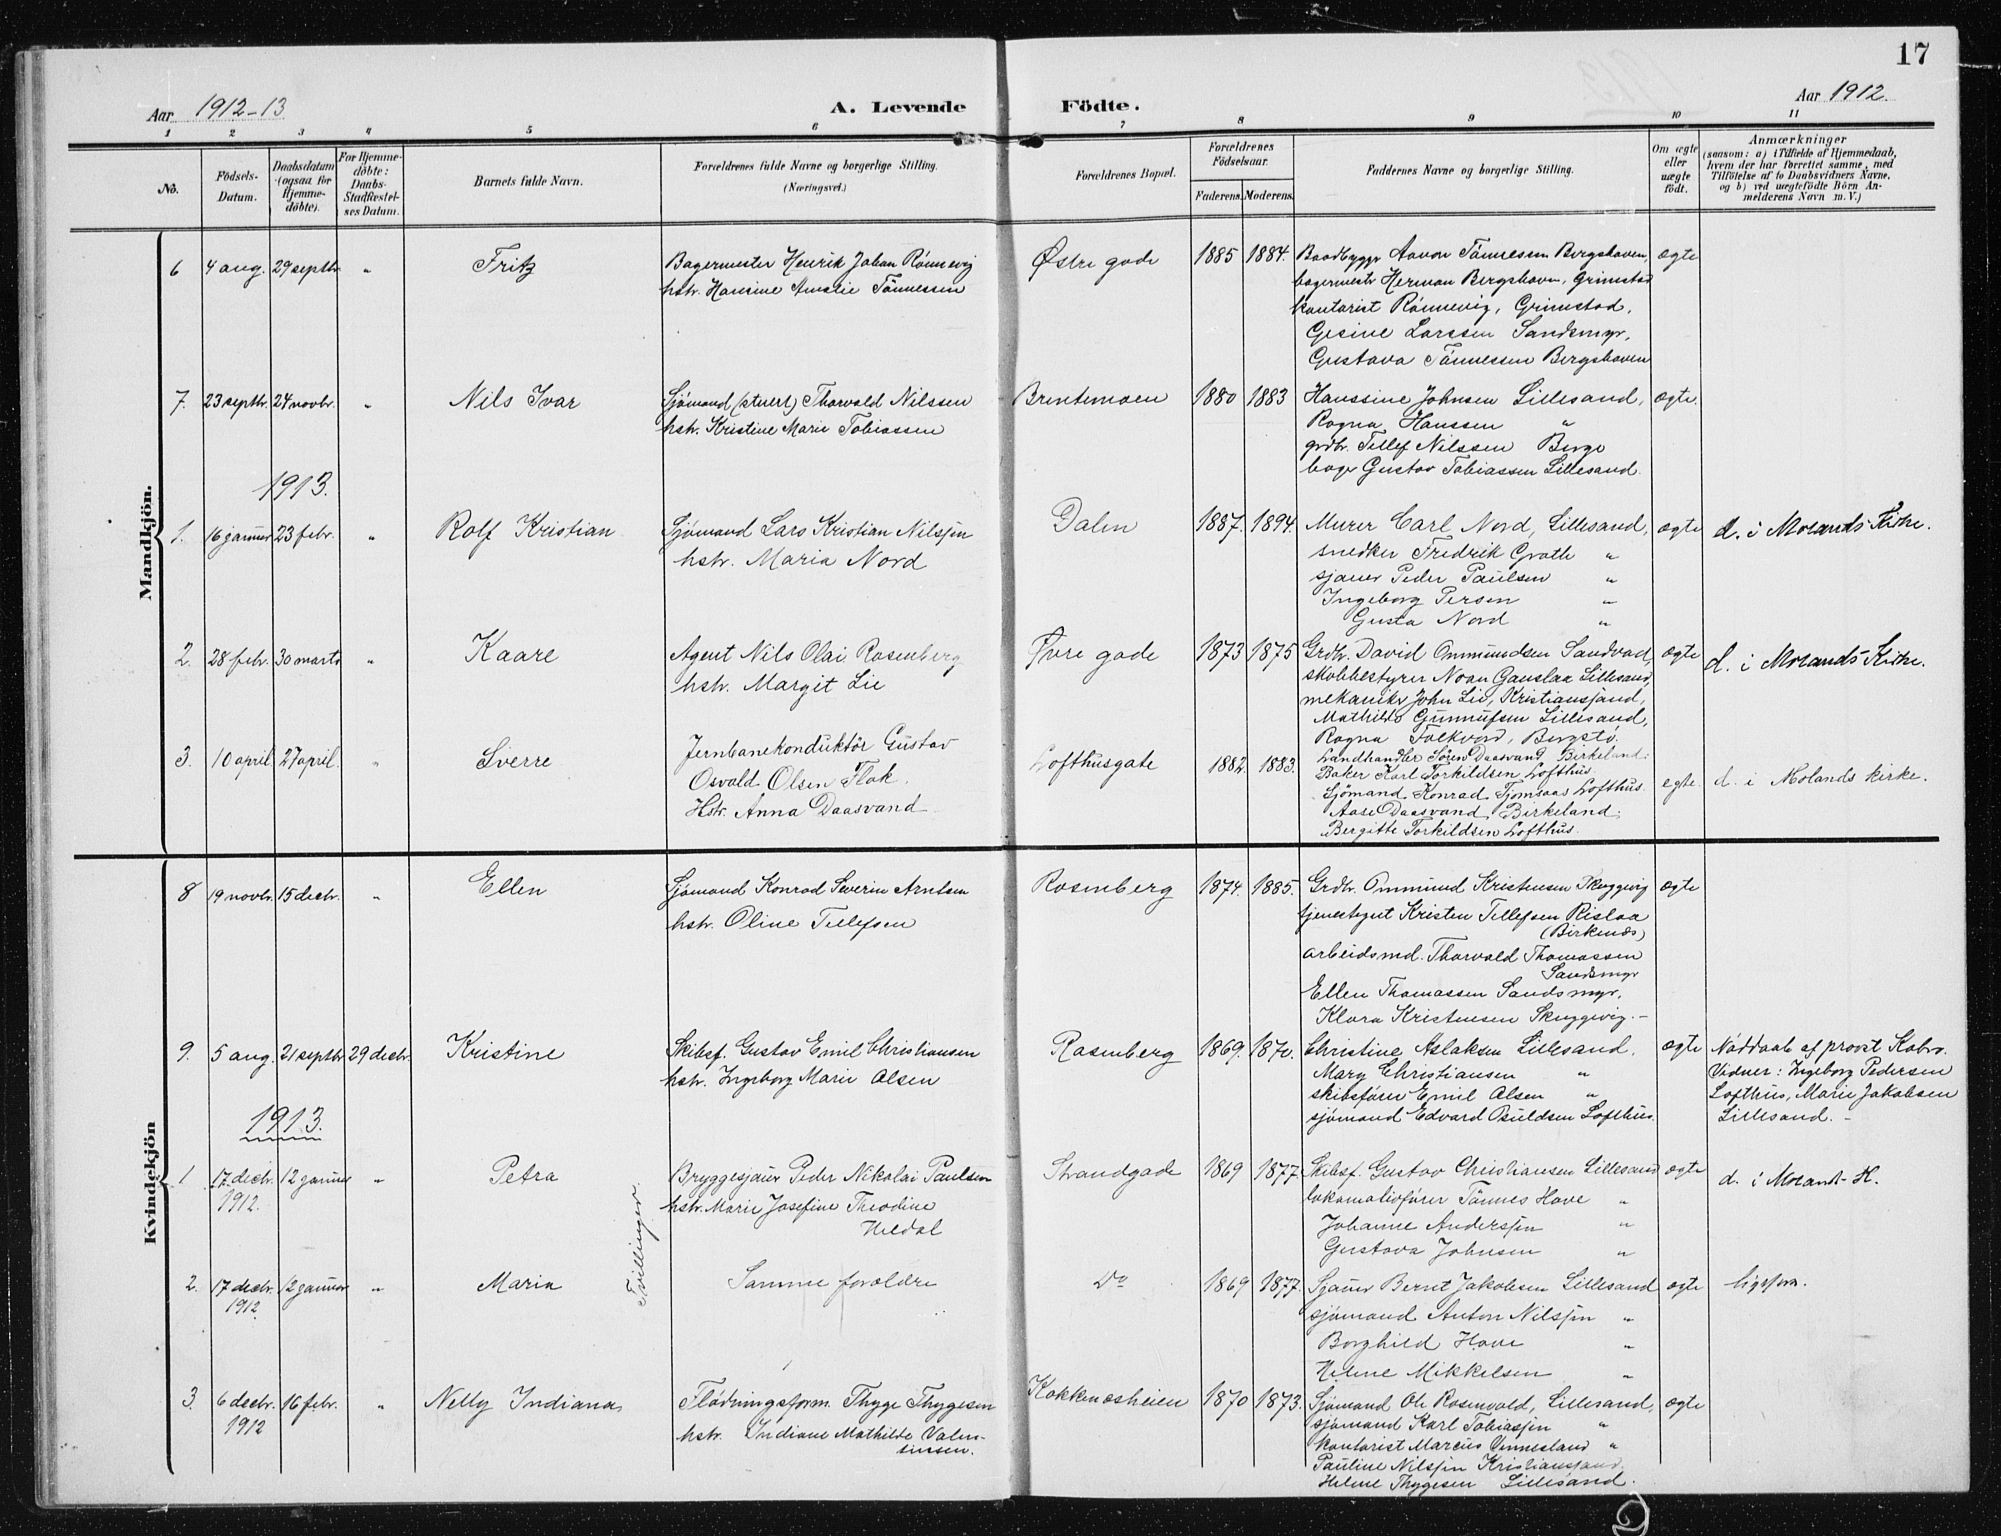 17
Aar 1912-13
A. Levende Födte.
Aar 1912.
1 2 3 4 5 6 7 8 9 10 11
No.
Födsels-Datum.
Daabsdatum (ogsaa for Hjemme-döbte).
For Hjemme-döbte: Daabs-Stadfæstel-ses Datum.
Barnets fulde Navn.
Forældrenes fulde Navne og borgerlige Stilling.
(Næringsvei.)
Forældrenes Bopæl.
Forældrenes Födselsaar.
Faderens. Moderens.
Faddernes Navne og borgerlige Stilling.
Om ægte eller uægte födt.
Anmærkninger
(saasom: a) i Tilfælde af Hjemmedaab,
hvem der har forrettet samme, med
Tilföielse af to Daabsvidners Navne,
og b) ved uægtefödte Börn An-
melderens Navn m. V.)
Mandkjön.
6 4 aug. 29 septbr. " Fritz
Bagermester Henrik Johan Rønnevig
hstr. Hansine Amalie Tønnessen
Østre gade 1885 1884.
Baadbygger Aavon Tønnessen Bergshaven,
bagermestr Herman Bergshavn, Grimstad
kontorist Rønnevig, Grimstad,
Gesine Larssen Sandsmyr,
Gustava Tønnessen Bergshaven
ægte
7. 23 septbr. 24 novbr. " Nils Ivar
Sjømand (stuert) Thorvald Nilssen
hstr. Kristine Marie Tobiassen
Brentemoen 1880 1883
Hanssine Johnsen Lillesand,
Ragna Hanssen "
grdbr. Tellef Nilssen Berge
bager Gustav Tobiassen Lillesand.
ægte.
1913.
1. 16 januar 23 febr. " Rolf Kristian
Sjømand Lars Kristian Nilssen
hstr. Maria Nord
Dalen 1887. 1894.
Murer Carl Nord, Lillesand,
snedker Fredrik Groth "
sjauer Peder Paulsen "
Ingeborg Persen "
Gusta Nord "
ægte
d. i Molands Kirke.
2. 28 febr. 30 marts " Kaare
Agent Nils Olai Rosenberg
hstr. Margit Lie
Øvre gade 1873 1875
Grdbr. David Ommundsen Sandvad,
skolebestyrer Noan Gauslaa Lillesand,
mekaniker John Lie, Kristianssand,
Mathilde Gunnufsen Lillesand,
Ragna Folkvord, Bergstø.
ægte
d. i Molands Kirke.
3. 10 april 27 april. " Sverre
Jernbanekonduktør Gustav
Osvald Olsen Flak.
Hstr. Anna Daasvand
Lofthusgate 1882. 1883.
Landhandler Søren Daasvand, Birkeland.
Baker Karl Torkildsen Lofthus.
Sjömand Konrad Tjomsaas Lofthus.
Aase Daasvand, Birkeland.
Bergitte Torkildsen Lofthus.
egte.
d. i Molands kirke.
Kvindekjön
8 19 novbr. 15 decbr. " Ellen
Sjømand Konrad Severin Arntsen
hstr. Oline Tellefsen
Rosenberg 1874. 1885.
Grdbr. Ommund Kristensen Skuggevig
tjenestegut Kristen Tellefsen Rislaa
(Birkenæs)
arbeidsmd. Thorvald Thomassen
Sandsmyr
Ellen Thomassen Sandsmyr,
Klara Kristensen Skuggevig. -
ægte
9. 5 aug. 21 septbr 29 decbr. Kristine
Skibsf. Gustav Emil Christiansen
hstr. Ingeborg Marie Olsen
Rosenberg 1869. 1870.
Christine Aslaksen Lillesand.
Mary Christiansen "
skibsfører Emil Olsen "
sjømand Edvard Osuldsen Lofthus.
ægte
Nøddaab af provst Kabro.
Vidner: Ingeborg Pedersen
Lofthus, Marie Jakobsen
Lillesand. -
1913.
1 17 decbr. 1912. 12 januar " Petra
Bryggesjauer Peder Nikolai Paulsen
hstr. Marie Josefine Theodine
Heldal
Tvillinger.
Strandgade 1869 1877.
Skibsf. Gustav Christiansen Lillesand
lokomotivfører Tønnes Hove "
Johanne Anderssen "
Gustava Johnsen "
ægte
d. i Moland K.
2. 17 decbr. 1912 12 januar " Maria
Samme forældre
Do 1869 1877.
Sjauer Bernt Jakobsen Lillesand
sjømand Anton Nilssen "
Borghild Hove "
Helene Mikkelsen "
ægte
ligesom.
3. 6 decbr. 1912 16 febr. " Nelly Indiana
Flødningsform. Thyge Thygesen
hstr. Indiane Mathilde Valen-
tinsen.
Kokkenesheien 1870 1873.
Sjømand Ole Rosenvold, Lillesand,
sjømand Karl Tobiassen "
kontorist Marcus Vennesland "
Pauline Nilssen Kristianssand
Helene Thygesen Lillesand.
ægte